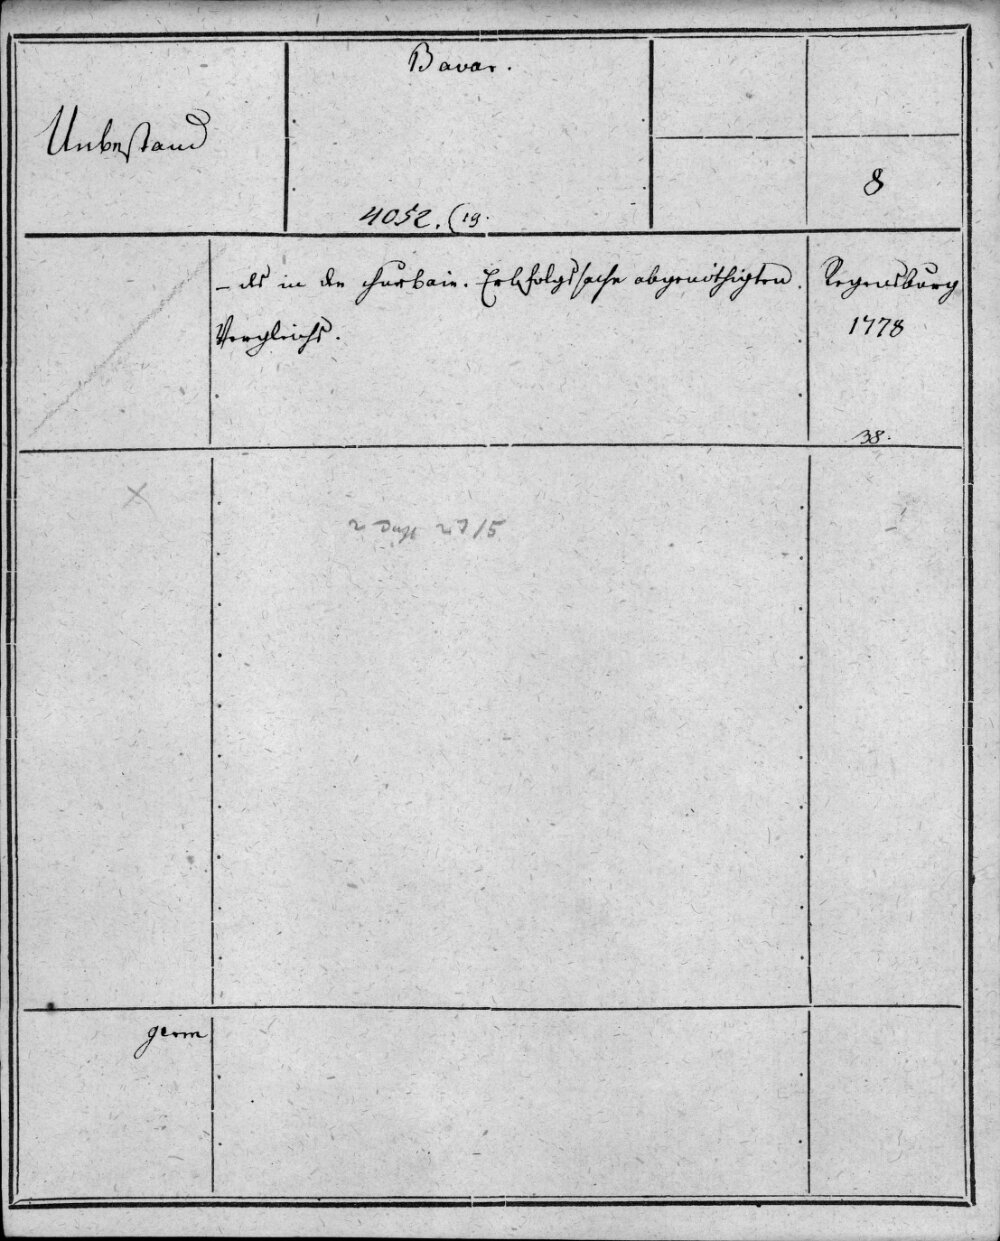 Bavar.
Unbestand
8
4052. (19.
– des in der churbair. Erbfolgssache abgenöthigten
Vergleichs.
Regensburg
1778
38.
X
2 Dupl 27/5
germ